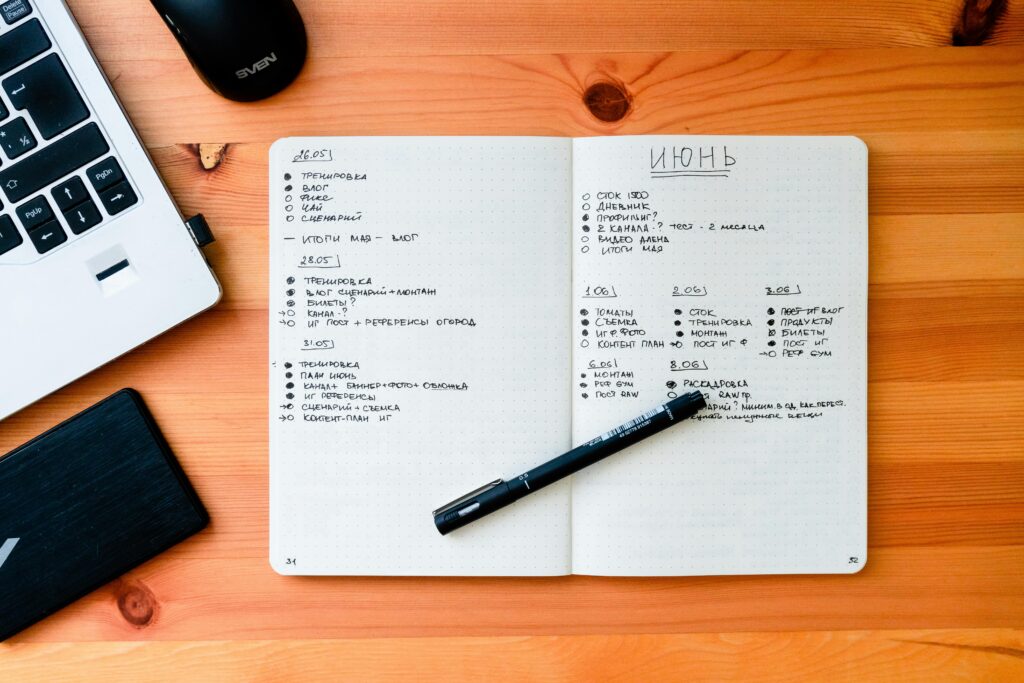 Delete
Pause
PgDn
PgUp
SVEN
26.05
● ТРЕНИРОВКА
● ВЛОГ
○ ФИКС
○ ЧАЙ
○ СЦЕНАРИЙ
— ИТОГИ МАЯ — ВЛОГ
28.05
● ТРЕНИРОВКА
● ВЛОГ СЦЕНАРИЙ + МОНТАЖ
● БИЛЕТЫ?
→○ КАНАЛ - ?
→○ ИГ ПОСТ + РЕФЕРЕНСЫ ОГОРОД
31.05
● ТРЕНИРОВКА
● ПЛАН ИЮНЬ
● КАНАЛ + БАННЕР + ФОТО + ОБЛОЖКА
● ИГ РЕФЕРЕНСЫ
→○ СЦЕНАРИЙ + СЪЕМКА
→○ КОНТЕНТ-ПЛАН ИГ
31
ИЮНЬ
○ СТОК 1500
○ ДНЕВНИК
● ПРОФИЛИНГ?
● 2 КАНАЛА - ? ТЕСТ - 2 МЕСЯЦА
○ ВИДЕО АЛЕНА
○ ИТОГИ МАЯ
1.06
● ТОМАТЫ
● СЪЕМКА
● ИГ Ф ФОТО
○ КОНТЕНТ ПЛАН
2.06
● СТОК
● ТРЕНИРОВКА
● МОНТАЖ
→○ ПОСТ ИГ Ф
3.06
● ПОСТ ИГ ВЛОГ
● ПРОДУКТЫ
БИЛЕТЫ
● ПОСТ ИГ
→○ РЕФ GYM
6.06
● МОНТАЖ
● РЕФ GYM
● ПОСТ RAW
8.06
● РАСКАДРОВКА
RAW ПР.
МИНИМ. В ОД. КАК ПЕРЕСТ.
вещи
0.5
32